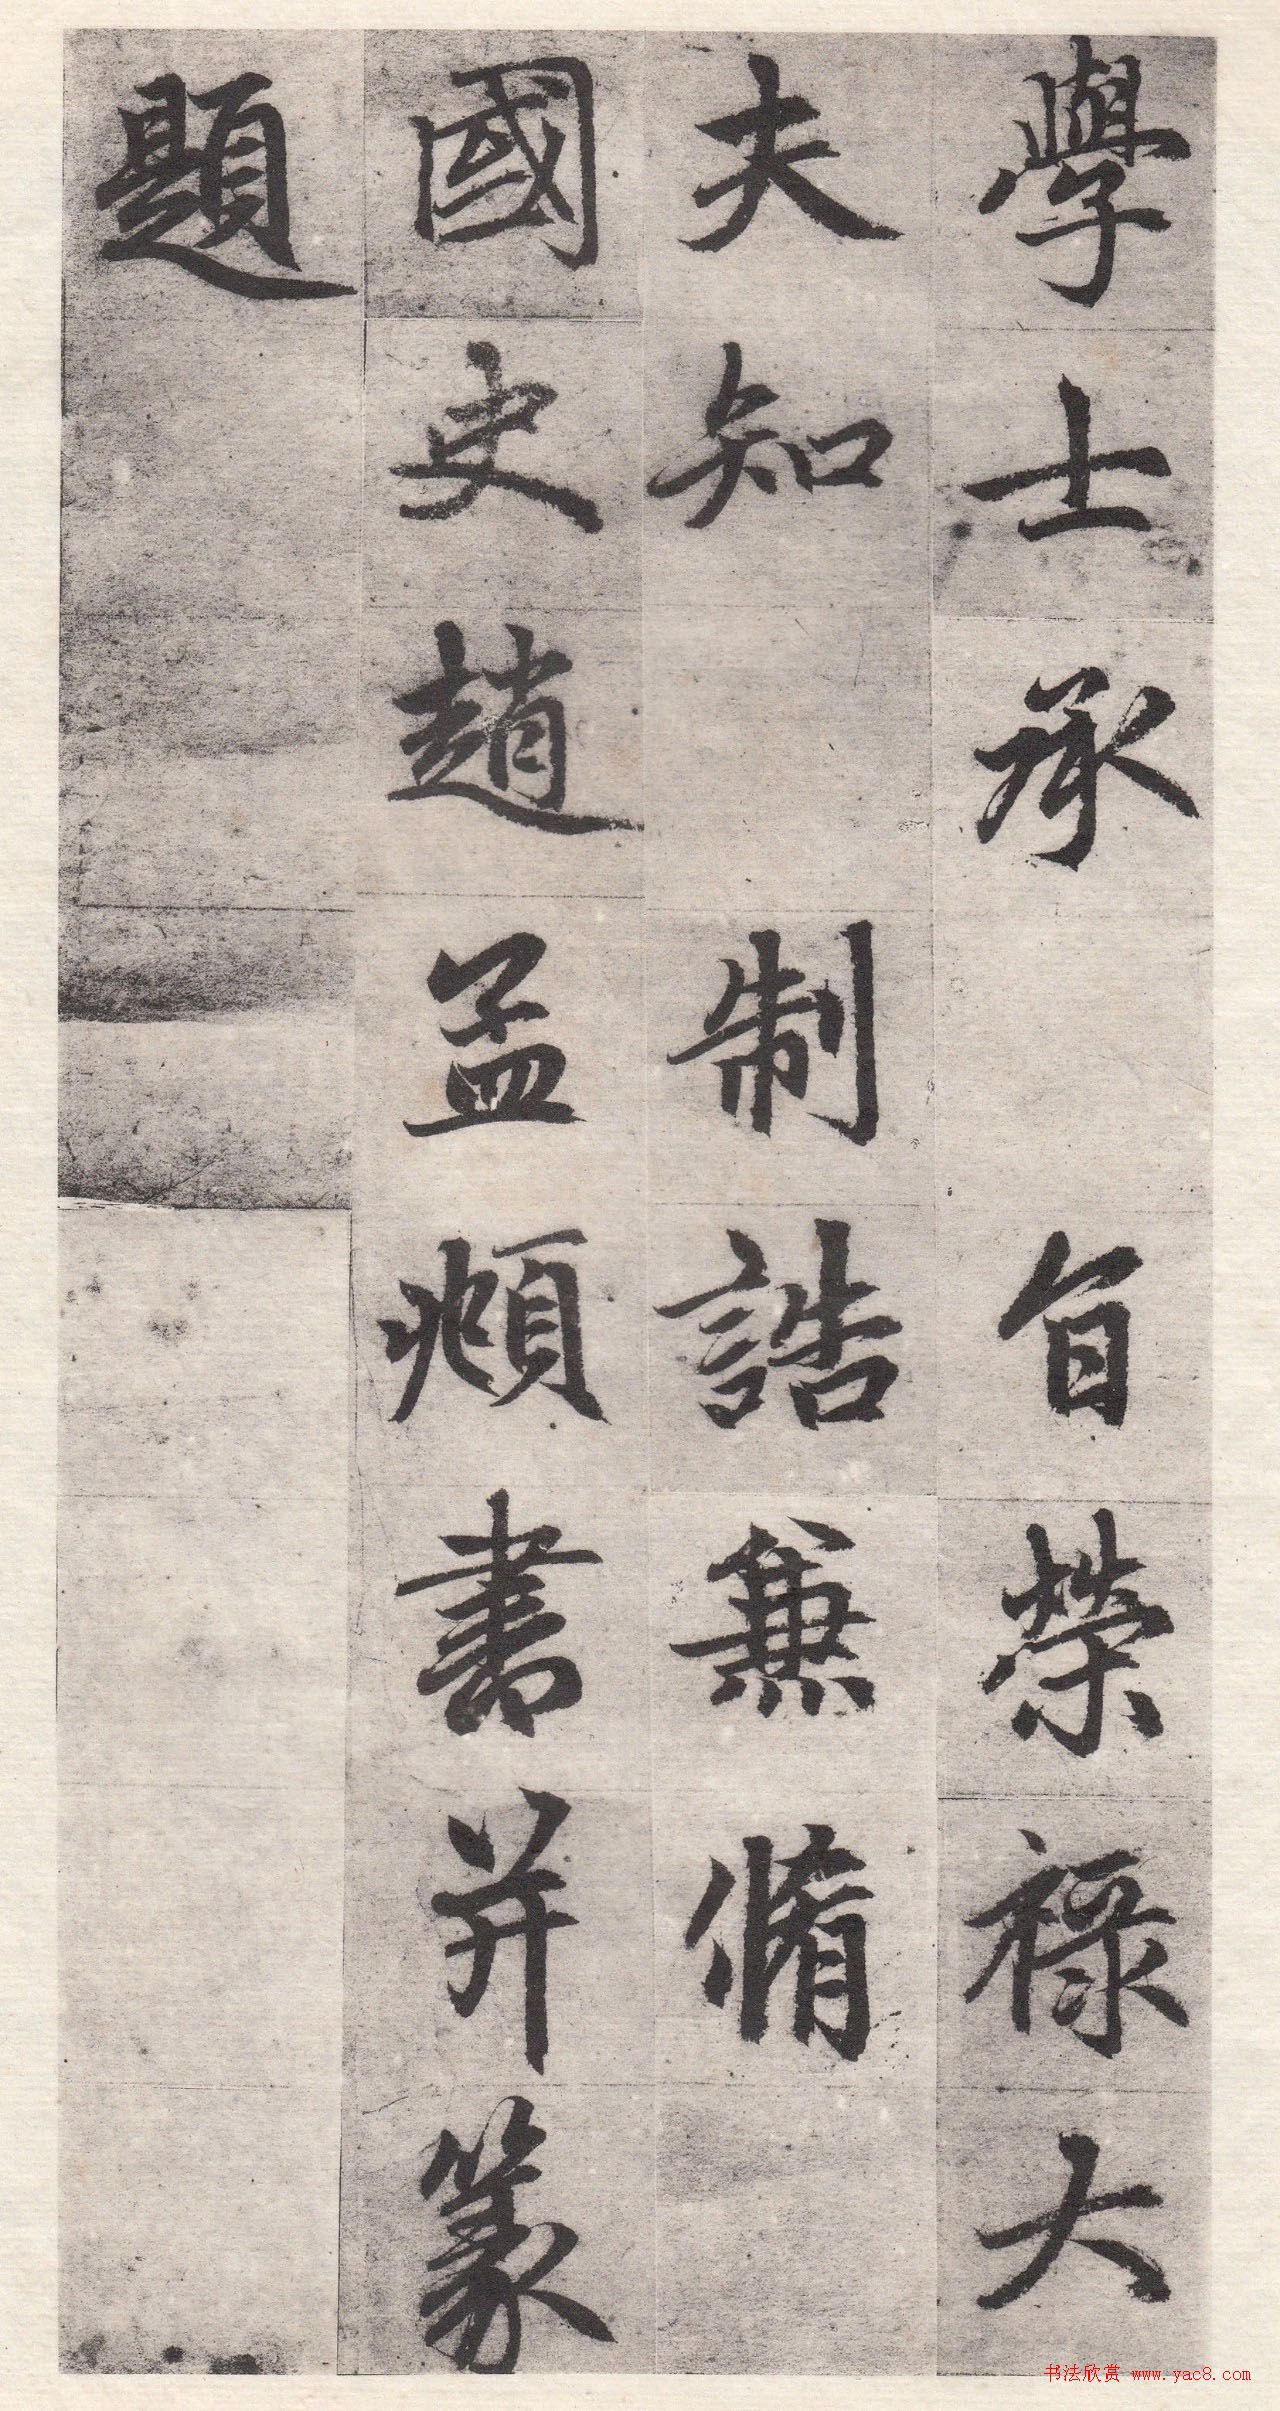 學士承旨榮祿大
夫知制誥兼脩
國史趙孟頫書并篆
題
书法欣赏 www.yac8.com